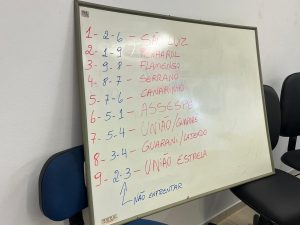 1- 2-6 - SÃO LUIZ
2- 1-9 - PEÑAROL
3- 9-8 - FLAMENGO
4- 8-7 - SERRANO
5- 7-6 - CANARINHO
6- 5-1 - ASSESPE
7- 5-4 - UNIÃO/
8- 3-4 - GUARANI/
9- 2-3 - UNIÃO ESTRELA
NÃO ENFRENTAR